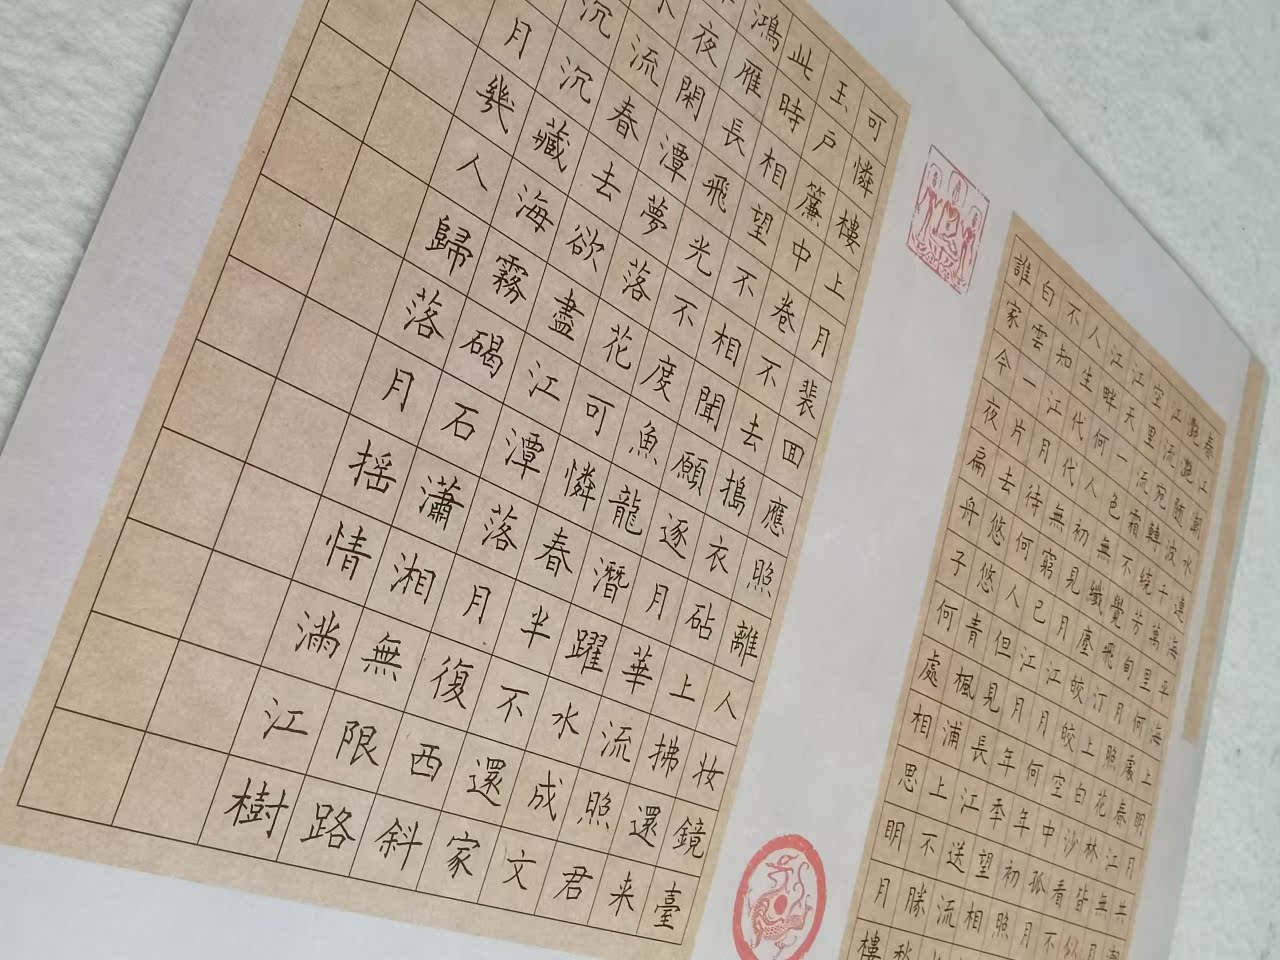 春江潮水連海平海上明月共潮
灩灩隨波千萬里何處春江無月
江流宛轉繞芳甸月照花林皆似
空里流霜不覺飛汀上白沙看不
江天一色無纖塵皎皎空中孤月
江畔何人初見月江月何年初照
人生代代無窮已江月年季望相
不知江月待何人但見長江送流
白雲一片去悠悠青楓浦上不勝愁
誰家今夜扁舟子何處相思明月樓
可憐樓上月裴回應照離人妝鏡臺
玉戶簾中卷不去搗衣砧上拂還来
此時相望不相聞願逐月華流照君
鴻雁長飛光不度魚龍潛躍水成文
夜閑潭夢落花可憐春半不還家
水流春去欲盡江潭落月復西斜
沉沉藏海霧碣石瀟湘無限路
月幾人歸落月摇情滿江樹